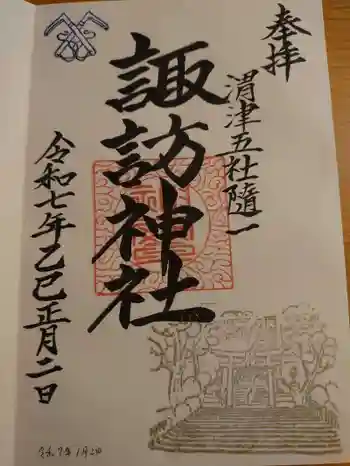 奉拝
渭津五社随一
諏訪神社
令和七年乙巳正月二日
令和7年1月2日